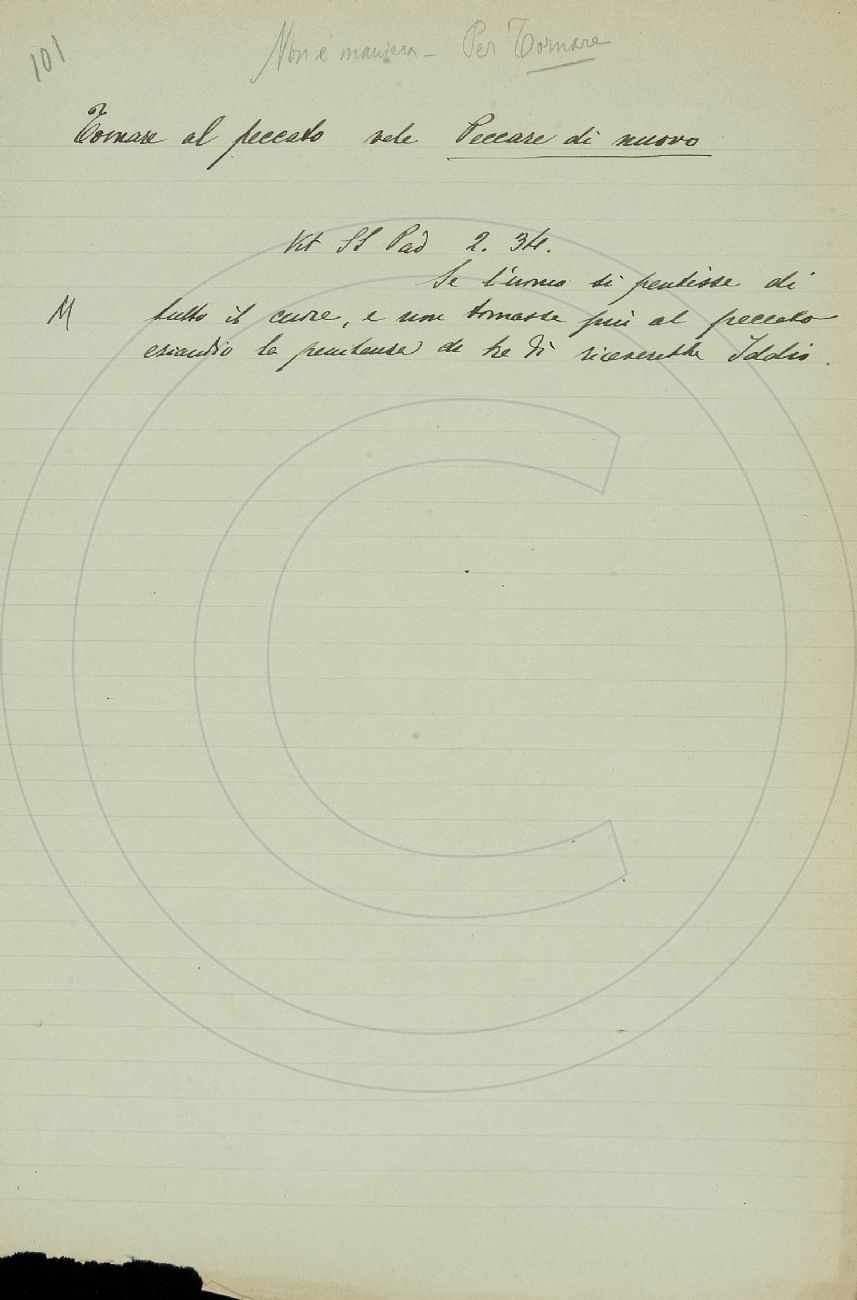 101
Non è maniera – Per Tornare
Tornare al peccato vale Peccare di nuovo
Vit SS Pad 2. 34.
Se l'uomo si pentisse di
M tutto il cuore, e non tornasse più al peccato
eziandio la penitenza di tre dì riceverebbe Iddio.